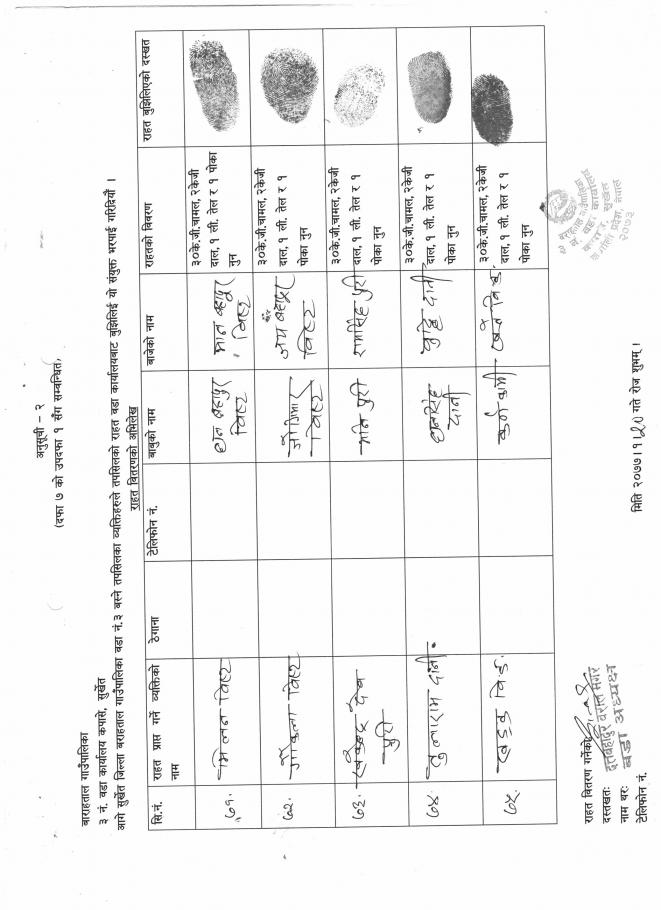 अनुसूची – २
(दफा ७ को उपदफा १ सँग सम्बन्धित)
बाराहताल गाउँपालिका
३ नं. वडा कार्यालय कपासे, सुर्खेत
आगे सुर्खेत जिल्ला बराहताल गाउँपालिका वडा नं.३ बस्ने तपसिलका व्यक्तिहरुले तपसिलको राहत वडा कार्यालयबाट बुझिलिई यो संयुक्त भरपाई गरिदियौं ।
राहत वितरणको अभिलेख
सि.नं. राहत प्राप्त गर्ने व्यक्तिको नाम ठेगाना टेलिफोन नं. बाबुको नाम बाजेको नाम राहतको विवरण राहत बुझिलिएको दस्खत
७१. मिलन विष्ट धन बहादुर विष्ट मान बहादुर विष्ट ३०के.जी.चामल, २केजी दाल, १ ली. तेल र १ पोका नुन
७२. गोकला विष्ट विष्ट जय बहादुर विष्ट ३०के.जी.चामल, २केजी दाल, १ ली. तेल र १ पोका नुन
७३. देव पुरी मनि पुरी रामसिंह पुरी ३०के.जी.चामल, २केजी दाल, १ ली. तेल र १ पोका नुन
७४. तुलाराम दानी धनसिंह दानी दानी ३०के.जी.चामल, २केजी दाल, १ ली. तेल र १ पोका नुन
७५. खडक वि.क. वि.क. ३०के.जी.चामल, २केजी दाल, १ ली. तेल र १ पोका नुन
राहत वितरण गर्नेको
दस्तखतः
नाम थरः दत्तबहादुर वराल मगर
वडा अध्यक्ष
टेलिफोन नं.
मिति २०७७।१।२० गते रोज शुभम् ।